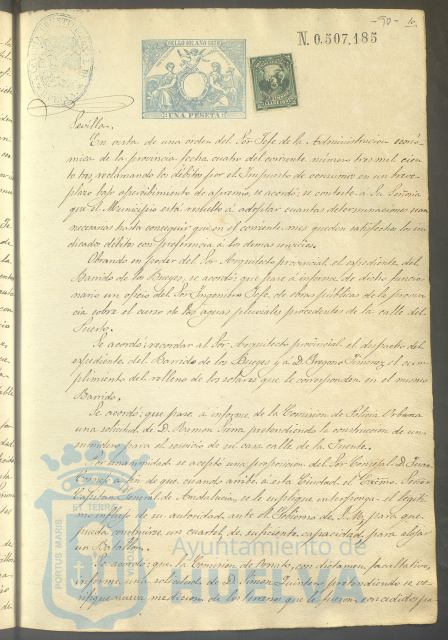 -90- 10
SELLO 10º AÑO 1878
N. 0.507.185
UNA PESETA
Sevilla.
En vista de una orden del Sor Jefe de la Administracion econó-
mica de la provincia fecha cuatro del corriente número tres mil cien-
to tres, reclamando los débitos por el Impuesto de consumos en un breve
plazo bajo apercibimiento de apremio, se acordó; se conteste á Su Señoria
que el Municipio está resuelto á adoptar cuantas determinaciones sean
necesarias hasta conseguir que en el corriente mes queden satisfechos los in-
dicados débitos con preferencia á los demas servicios.
Obrando en poder del Sor Arquitecto provincial el expediente del
Barrido de los Bueyes, se acordó; que pase á informe de dicho funcio-
nario un oficio del Sor Ingeniero Jefe de obras públicas de la provin-
cia sobre el curso de las aguas pluviales procedentes de la calle del
Puerto.
Se acordó; recordar al Sor Arquitecto provincial el despacho del
expediente del Barrido de los Bueyes y á D. Gregorio Jimenez el cum-
plimiento del relleno de los solares que le corresponden en el mismo
Barrido.
Se acordó; que pase á informe de la Comision de Policia Urbana
una solicitud de D. Ramon pretendiendo la construccion de un
para el servicio de su casa calle de la Fuente.
Por unanimidad se aceptó una proposicion del Sor Concejal D.
á fin de que, cuando arribe á esta Ciudad el Excmo. Señor
Capitan General de Andalucia, se le suplique interponga el legíti-
mo influjo de su autoridad ante el Gobierno de S. M. para que
pueda construirse un cuartel de suficiente capacidad para alojar
un Batallon.
Se acordó; que la Comision de Ornato, con dictamen facultativo,
informe una solicitud de D. Simon pretendiendo se ve-
rifique nueva medicion de los terrenos que le fueron concedidos pa-
PORTUS MARIS
ET TERRÆ
Ayuntamiento de
HUELVA